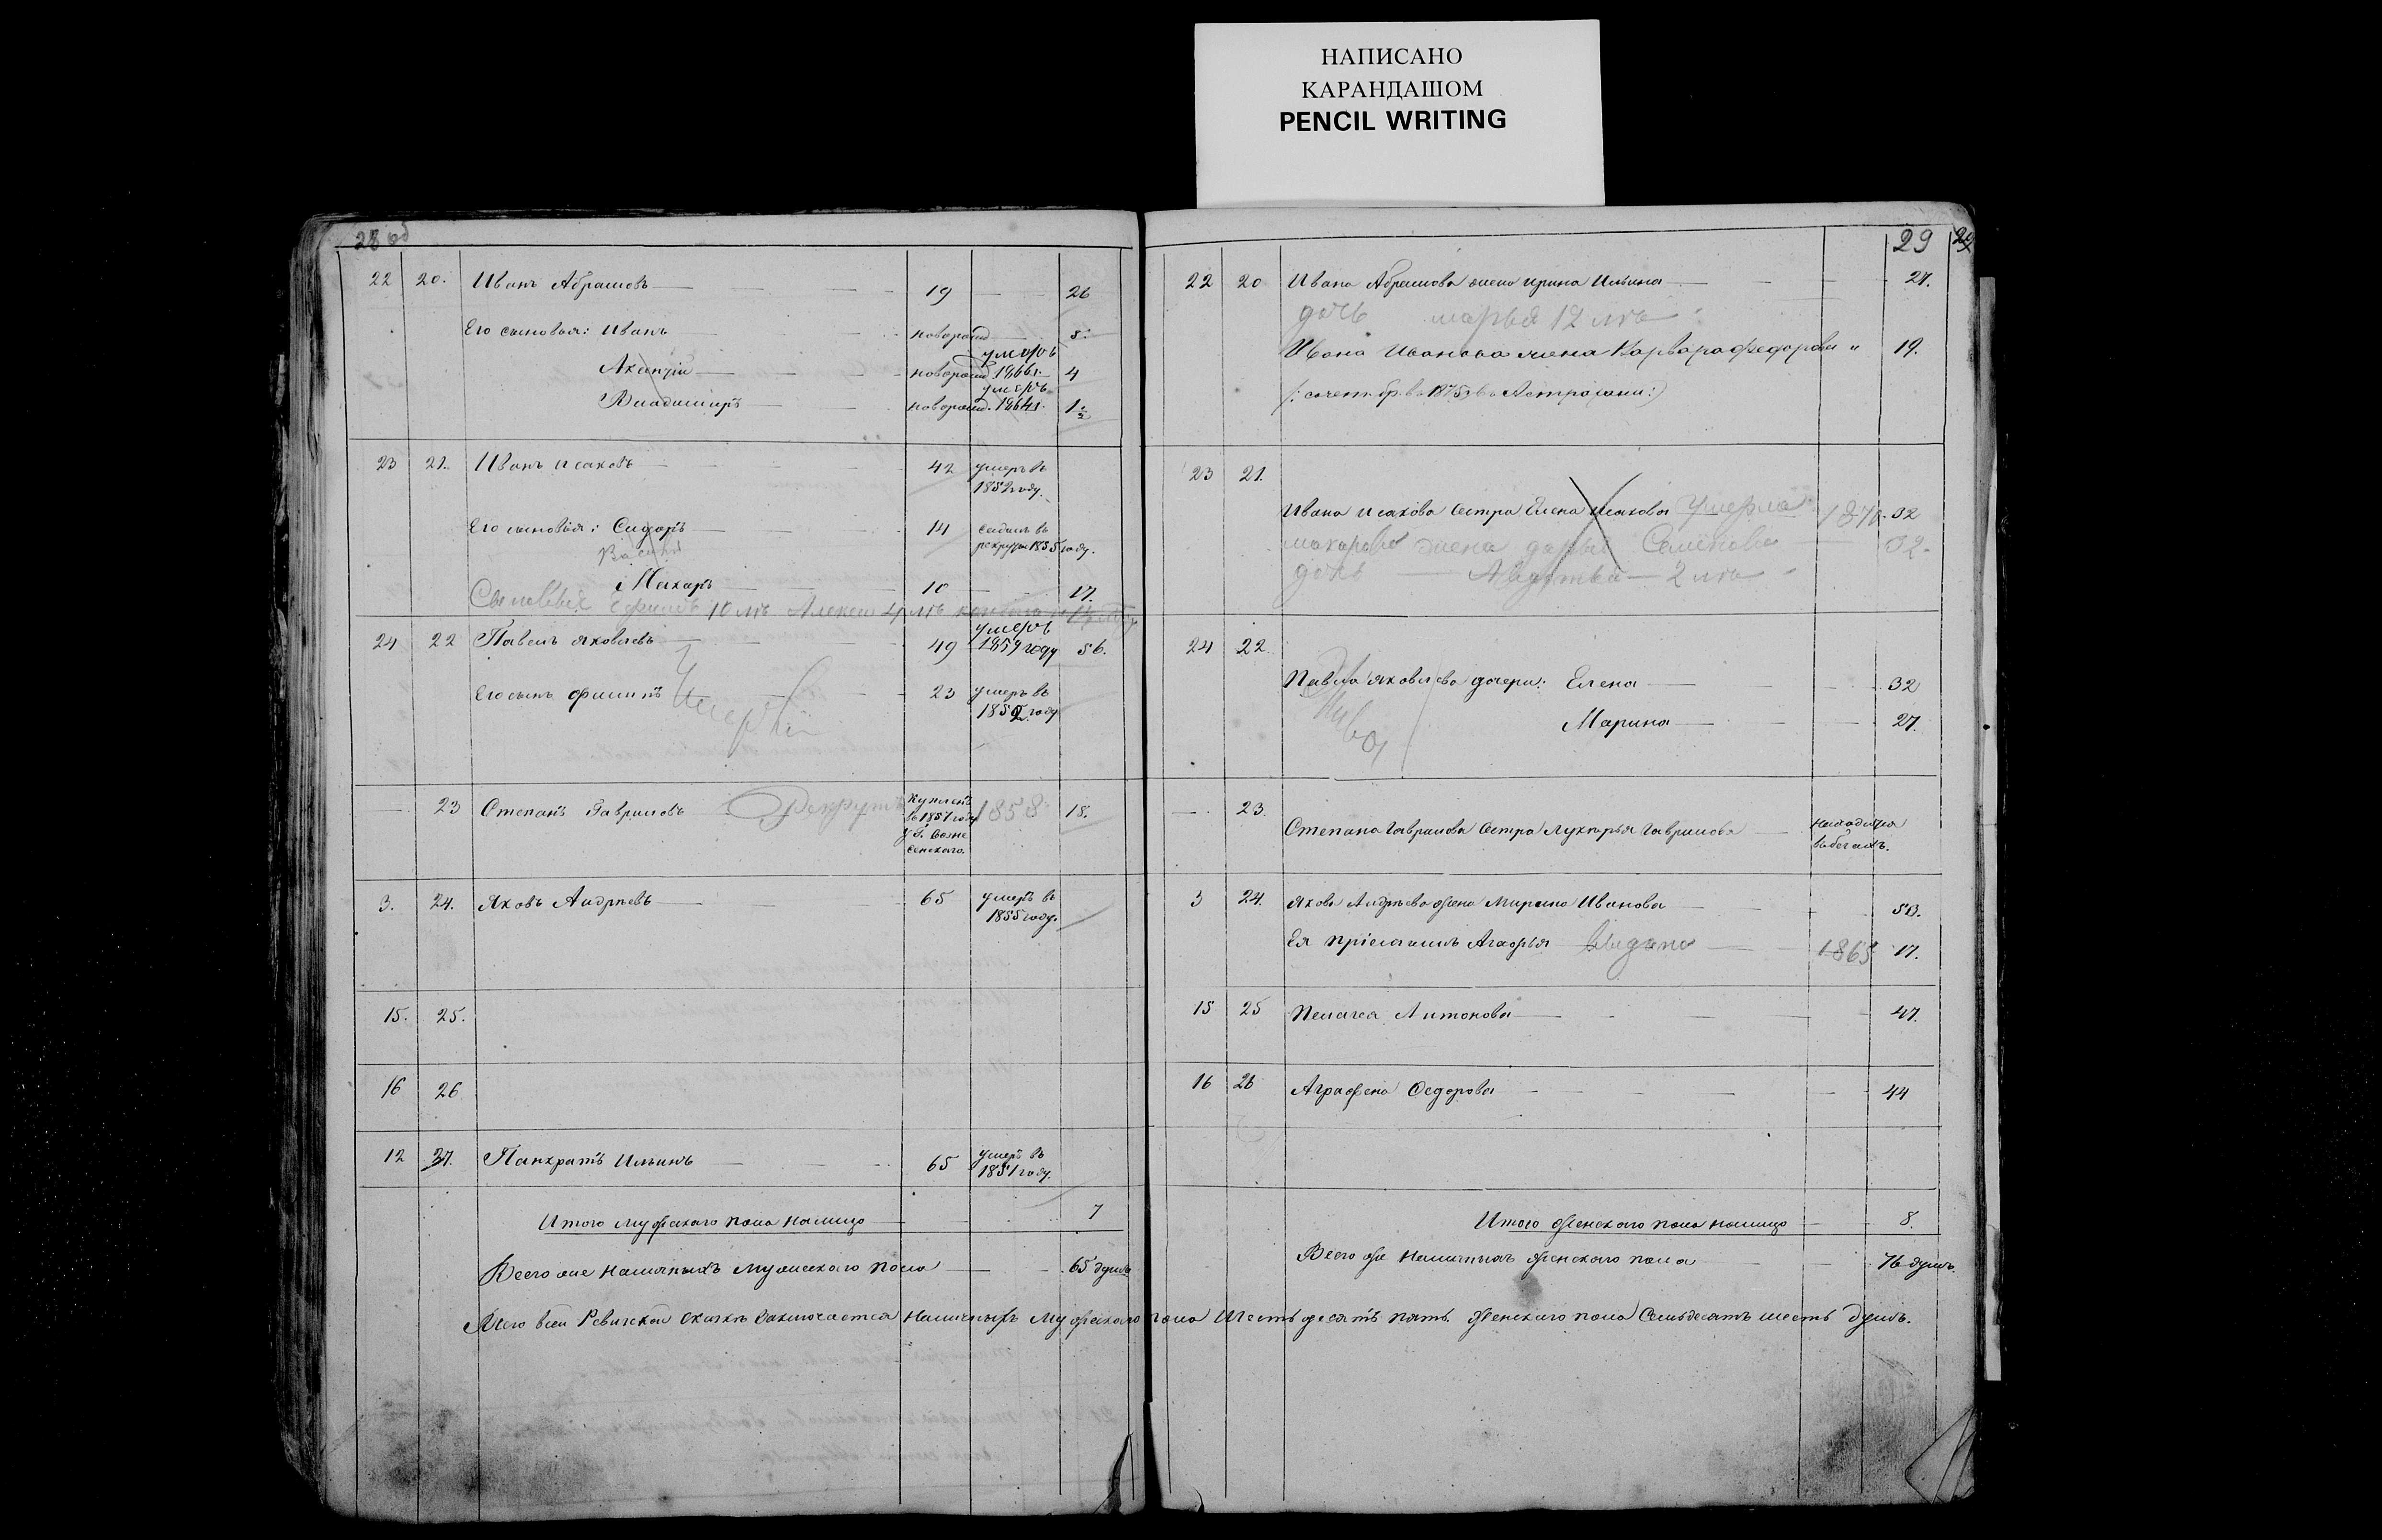 НАПИСАНО
КАРАНДАШОМ
PENCIL WRITING
28 об
22 20. Иванъ Абрамовъ 19 26
Его сыновья: Иванъ новорожд 5.
умеръ
новорожд. 1866г. 4
умеръ
Владимиръ новорожд. 1864г. 1 1/2
23 21. Иванъ Исаковъ 42 умеръ въ
1852 году.
Его сыновья: Сидоръ 14 въ
рекруты 1855 году.
Макаръ 10 17.
Сыновья 10 лѣ Алексей 4 лѣ
24 22 Павелъ Яковлевъ 49 умеръ 1859 году 56.
Его сынъ Филипъ 23 умеръ въ
1852 году
23 Степанъ Гавриловъ Рекрутъ купленъ 1858 18.
въ 1857 году
у Г. Возне
сенскаго.
3. 24. Яковъ Андреевъ 65 умеръ въ
1855 году.
15. 25.
16 26
12 27. Панкратъ Ильинъ 65 умеръ въ
1851 году.
Итого мужскаго пола налицо 7
Всего же наличныхъ мужскаго пола 65 душъ
29
22 20 Ивана Абрамова жена Ирина Ильина 27.
дочь марья 12 лѣ
Ивана Иванова жена Варвара Федорова 19.
въ 1875 въ Астрахани:)
23 21.
Ивана Исакова сестра Елена Исакова умерла 187 32
макарова жена дарья Семенова 32.
дочь 2 лѣ
24 22
Павла Яковлева дочери: Елена 32
Марина 27.
23.
Степана Гаврилова сестра Лукерья Гаврилова находится
въ бегахъ.
3 24. Якова Андреева жена Марина Иванова 50.
Ея Агафья выдана 1865 17.
15 25 Пелагея Антонова 47.
16 26 Аграфена Федорова 44
Итого женскаго пола налицо 8.
Всего же наличныхъ женскаго пола 76 душъ.
Ревизской сказкѣ заключается наличныхъ мужскаго пола шестьдесятъ пять женскаго пола семьдесятъ шесть душъ.